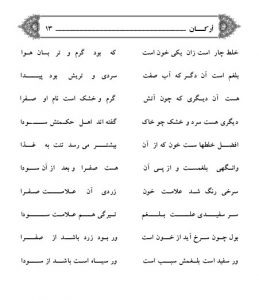 ارکان ۱۳
خلط چار است زان یکی خون است که بود گرم و تر بسان هوا
بلغم است آن دگر که آب صفت سردی و تریش بود پیدا
هست آن دیگری که چون آتش گرم و خشک است نام او صفرا
دیگری هست سرد و خشک چو خاک گفته اند اهل حکمتش سودا
افضل خلطها ست خون که از آن بیشتر می رسد تنت به غذا
وانگهی بلغمست و از پی آن هست صفرا و بعد از آن سودا
سرخی رنگ شد علامت خون زردی آن علامت صفرا
سر سفیدی علت بلغم تیرگی هم علامت سودا
بول چون سرخ آید از خون است ور بود زرد باشد از صفرا
ور سفید است بلغمش سبب است ور سیاه است باشد از سودا